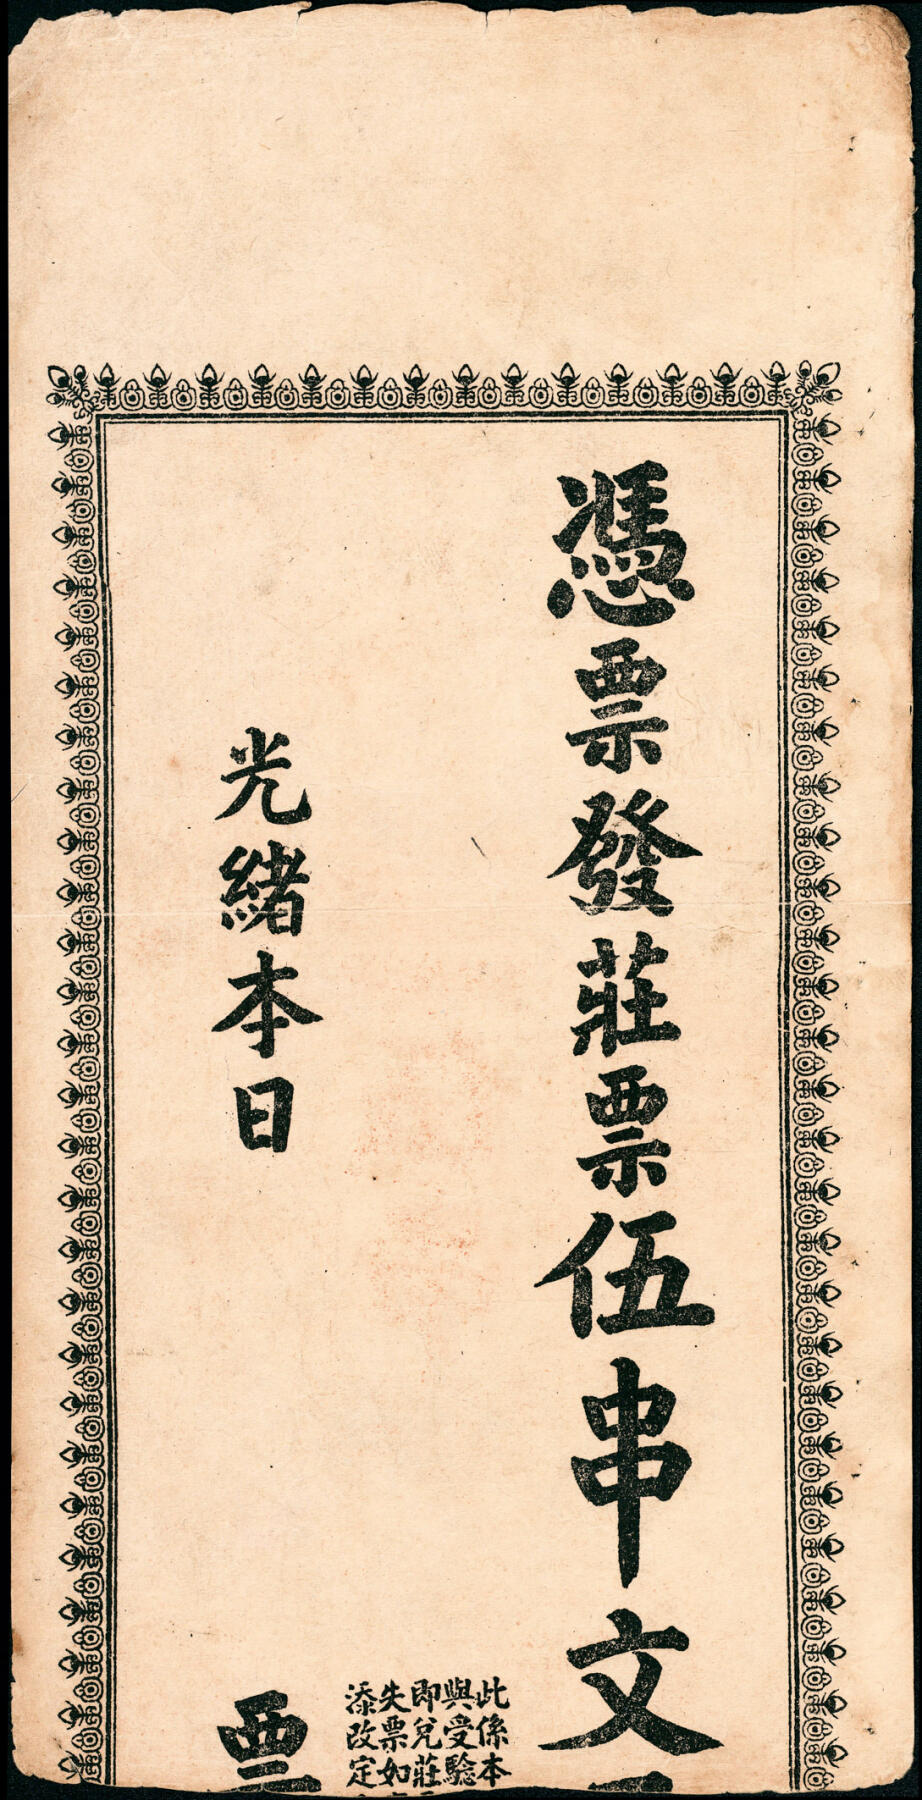 憑票發莊票伍串文
此係本
與受驗
即兌莊
失票如
添改定
光緒本日
票